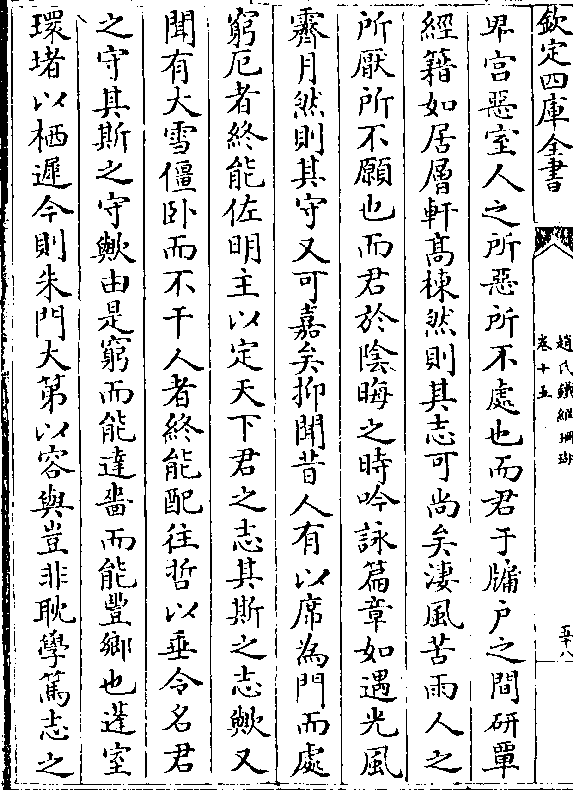 欽定四庫全書
趙氏鐵網珊瑚
卷十五
百十八
卑宫惡室人之所惡所不處也而君于牖户之間研覃
經籍如居層軒髙棟然則其志可尚矣淒風苦雨人之
所厭所不願也而君於陰晦之時吟詠篇章如遇光風
霽月然則其守又可嘉矣抑聞昔人有以席為門而處
窮厄者終能佐明主以定天下君之志其斯之志歟又
聞有大雪僵卧而不干人者終能配往哲以垂令名君
之守其斯之守歟由是窮而能達嗇而能豐鄉也蓬室
環堵以栖遲今則朱門大第以容與豈非耽學篤志之